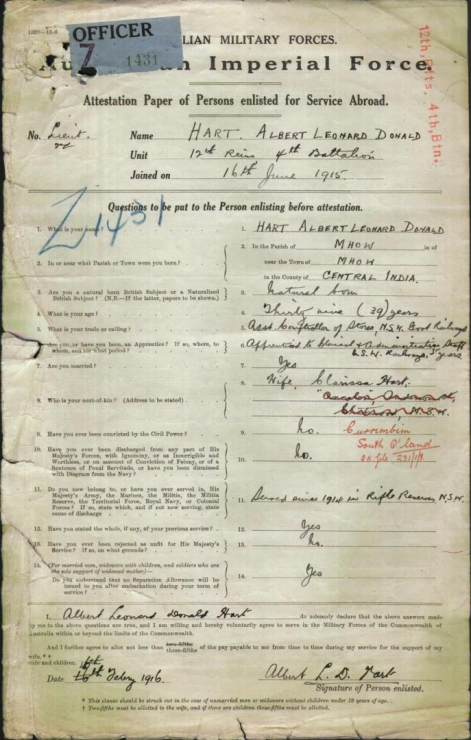 OFFICER
Z 1431
LIAN MILITARY FORCES.
n Imperial Force.
12th Rfts, 4th Btn.
Attestation Paper of Persons enlisted for Service Abroad.
No. Lieut.
Name HART. ALBERT LEONARD DONALD
Unit 12th Reins 4th Battalion
Joined on 16th June 1915
Questions to be put to the Person enlisting before attestation.
Z1431
1. What is your name?
1. HART ALBERT LEONARD DONALD
2. In or near what Parish or Town were you born?
2. In the Parish of MHOW in or
near the Town of MHOW
in the County of CENTRAL INDIA.
3. Are you a natural born British Subject or a Naturalized
British Subject? (N.B.—If the latter, papers to be shown.)
3. Natural born
4. What is your age?
4. Thirty nine (39) years
5. What is your trade or calling?
5. Asst Comptroller of Stores, N.S.W. Govt Railways
6. Are you, or have you been, an Apprentice? If so, where, to
whom, and for what period?
6. Apprenticed to Clerical & Administrative Staff
N.S.W. Railways, 5 years
7. Are you married?
7. Yes
8. Who is your next-of-kin? (Address to be stated)
8. Wife, Clarissa Hart.
Chatswood N.S.W.
9. Have you ever been convicted by the Civil Power?
9. No.
Currumbin
South Q'land
10. Have you ever been discharged from any part of His
Majesty's Forces, with Ignominy, or as Incorrigible and
Worthless, or on account of Conviction of Felony, or of a
Sentence of Penal Servitude, or have you been dismissed
with Disgrace from the Navy?
10. No.
11. Do you now belong to, or have you ever served in, His
Majesty's Army, the Marines, the Militia, the Militia
Reserve, the Territorial Force, Royal Navy, or Colonial
Forces? If so, state which, and if not now serving, state
cause of discharge
11. Served since 1914 in Rifle Reserves N.S.W.
12. Have you stated the whole, if any, of your previous service?
12. Yes
13. Have you ever been rejected as unfit for His Majesty's
Service? If so, on what grounds?
13. No.
14. (For married men, widowers with children, and soldiers who are
the sole support of widowed mother)—
Do you understand that no Separation Allowance will be
issued to you after embarkation during your term of
service?
14. Yes
I, Albert Leonard Donald Hart do solemnly declare that the above answers made
by me to the above questions are true, and I am willing and hereby voluntarily agree to serve in the Military Forces of the Commonwealth of
Australia within or beyond the limits of the Commonwealth.
And I further agree to allot not less than two-fifths three-fifths of the pay payable to me from time to time during my service for the support of my
wife.* †
wife and children.
Date 16th Febry 1916.
Albert L. D. Hart
Signature of Person enlisted.
* This clause should be struck out in the case of unmarried men or widowers without children under 18 years of age.
† Two-fifths must be allotted to the wife, and if there are children three-fifths must be allotted.